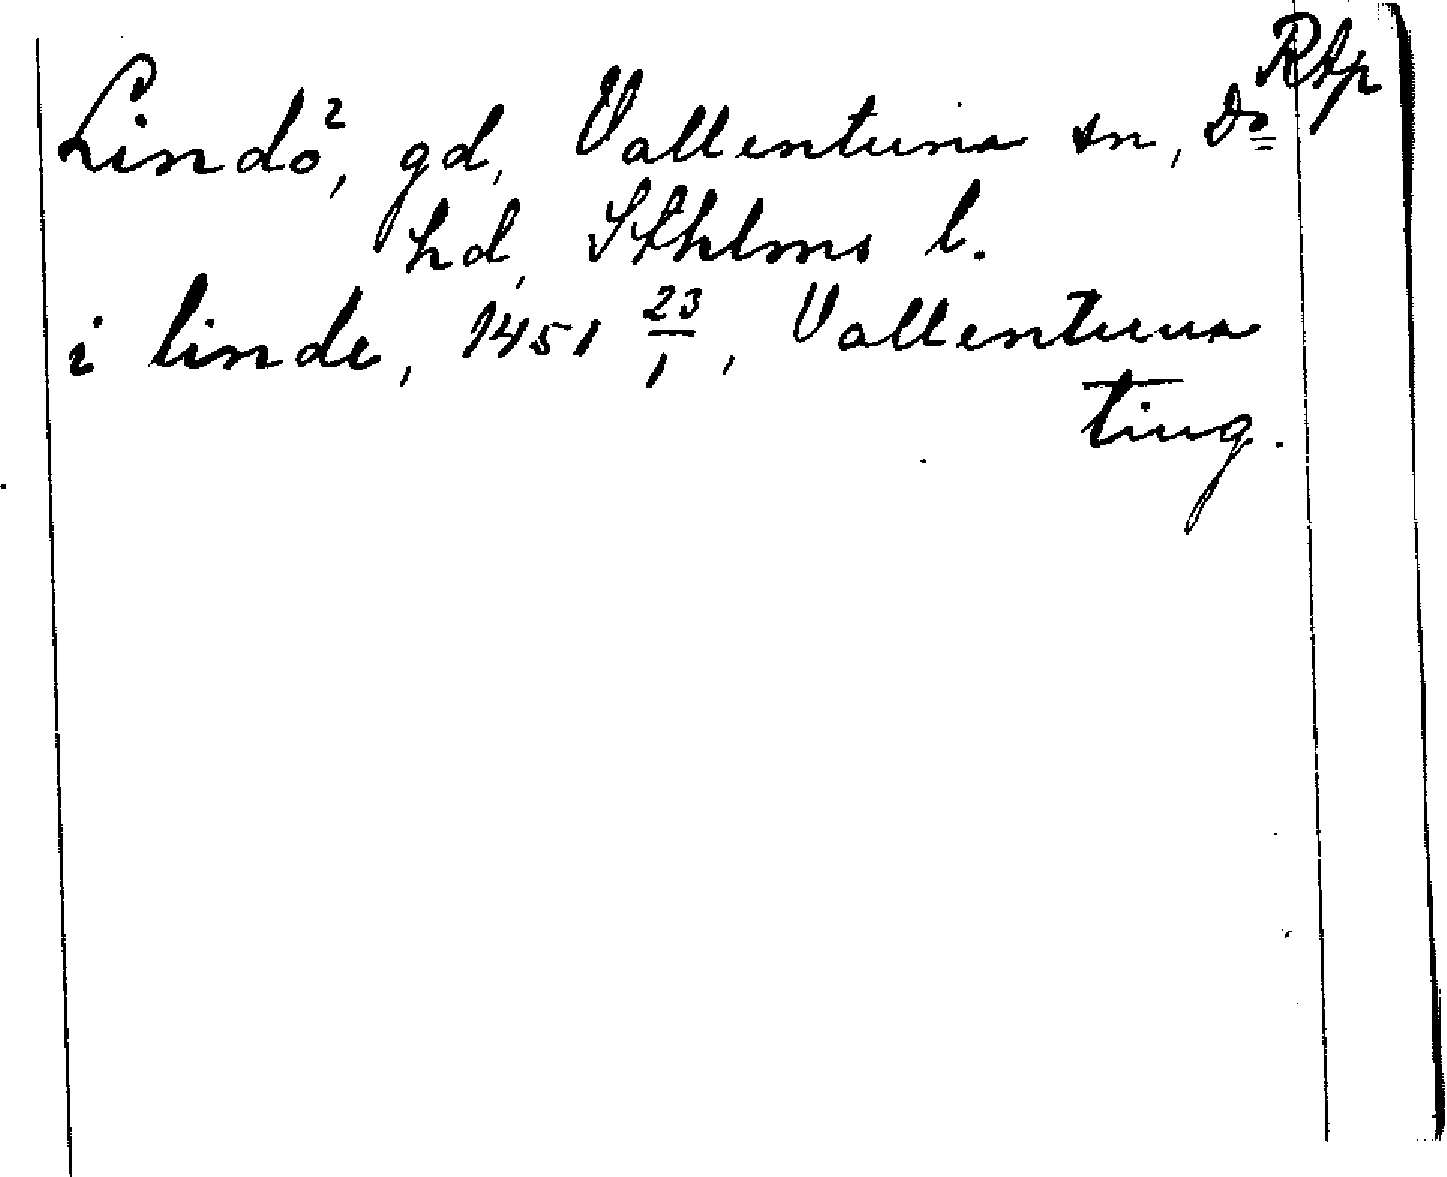 Rtp
Lindö², gd, Vallentuna sn, Do
hd, Sthlms l.
i linde, 1451 23/1, Vallentuna
ting.